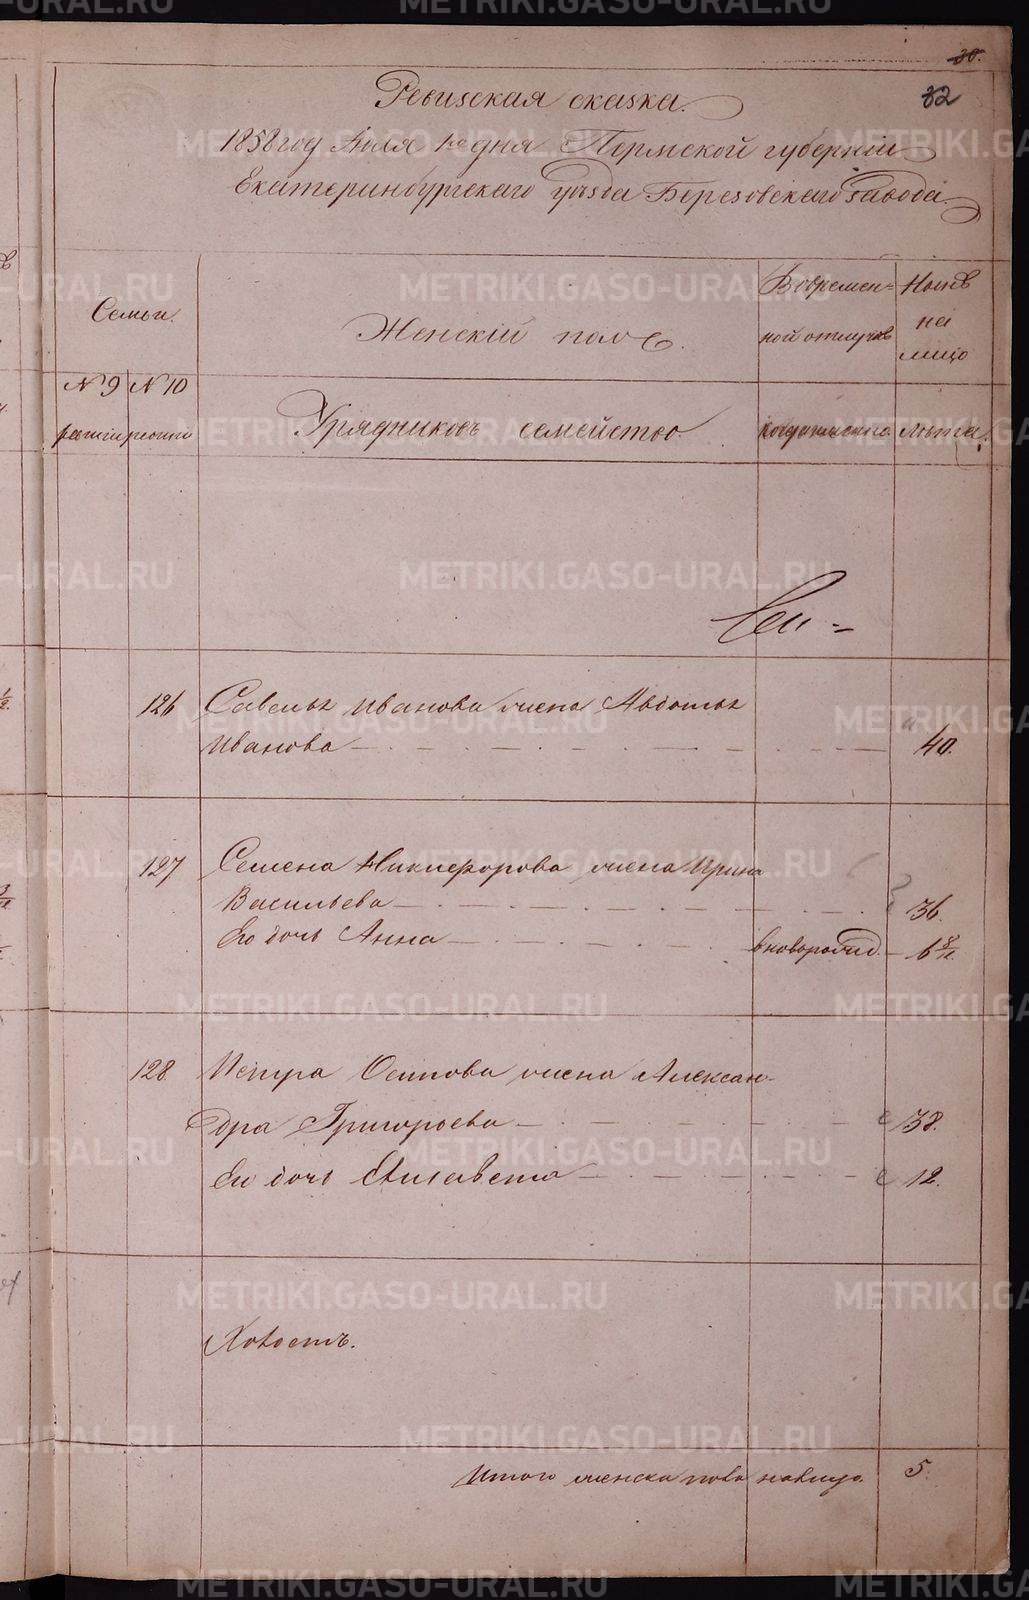 30.
32
Ревизская сказка.
1858 год Июля 1го дня Пермской губерніи
Екатеринбургскаго уѣзда Березовскаго завода.
Семьи.
Женскій полъ.
Во времен=
ной отлучкѣ
Нынѣ
на
лицо
№ 9 № 10
ревизіи ревизіи
Урядниковъ семейство.
Лѣта.
126 Савелья Иванова жена Авдотья
Иванова 40.
127 Семена Никифорова жена Ирина
Васильева 36.
Его дочь Анна вновьрожд. 6 8/12.
128. Петра Осипова жена Алексан-
дра Григорьева 38.
Его дочь Елисавета 12.
Холостъ.
Итого женска пола налицо. 5.
METRIKI.GASO-URAL.RU